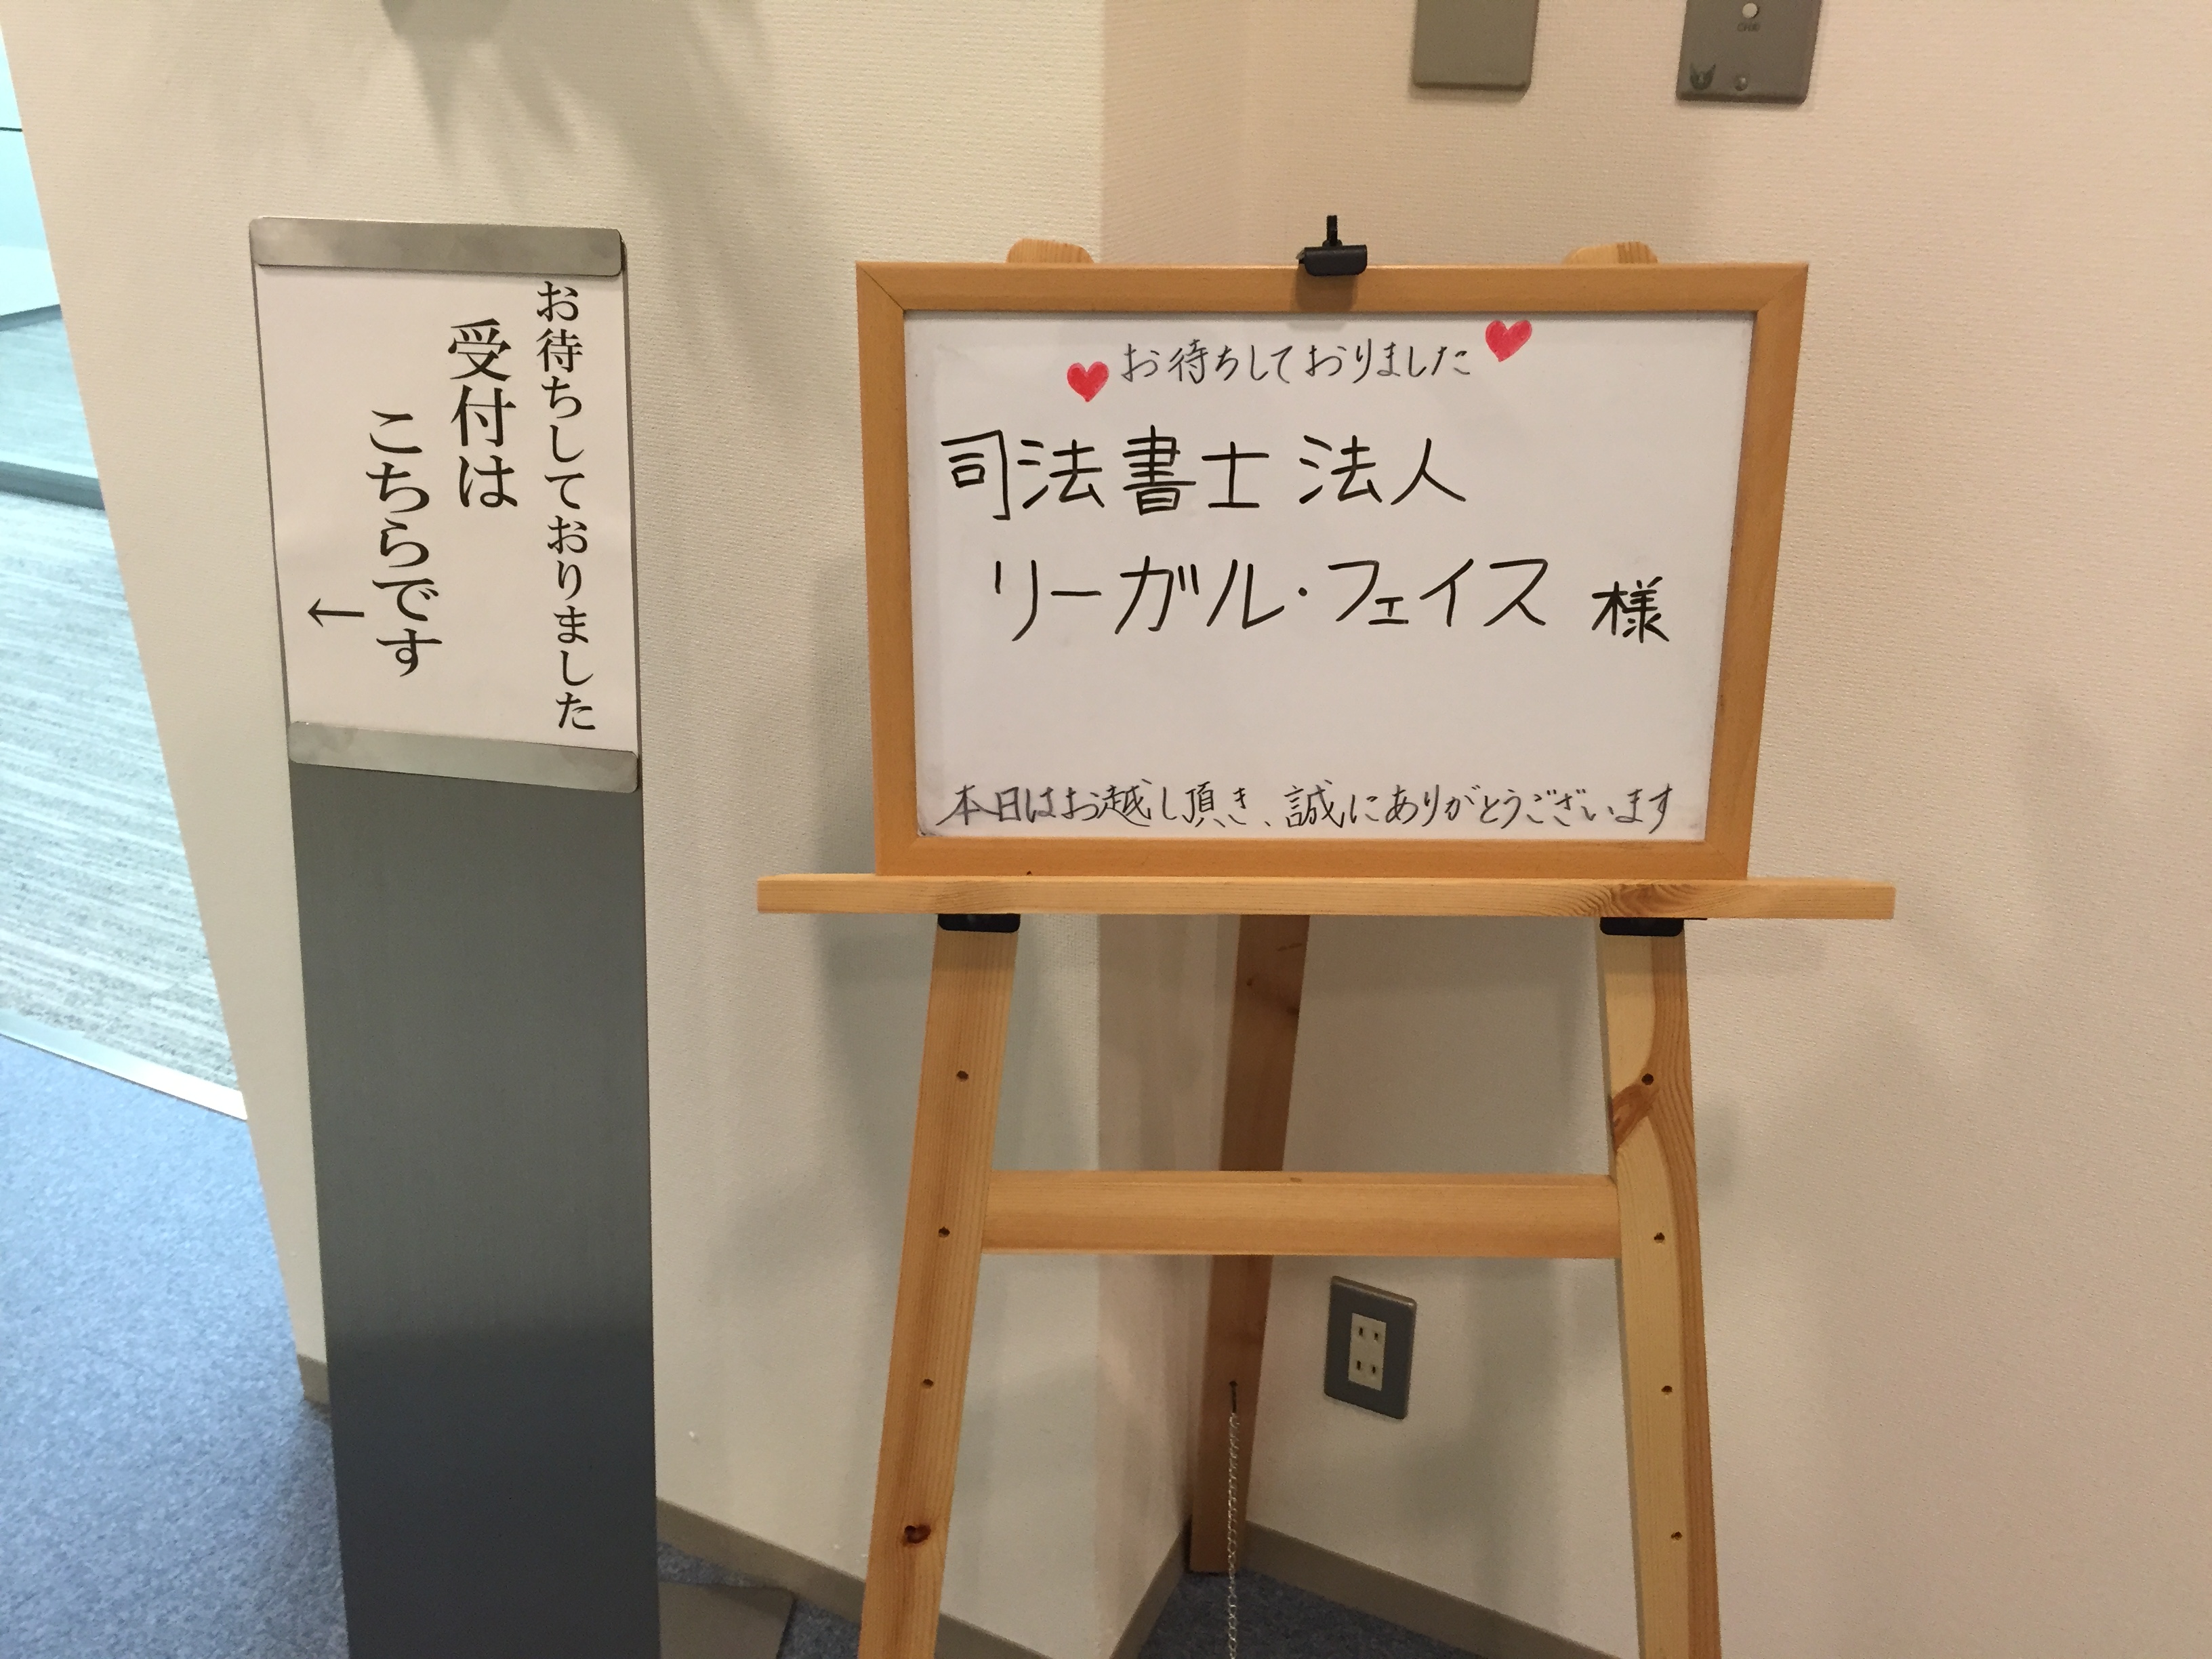 お待ちしておりました
受付は
こちらです
←
お待ちしておりました
司法書士法人
リーガル・フェイス 様
本日はお越し頂き、誠にありがとうございます